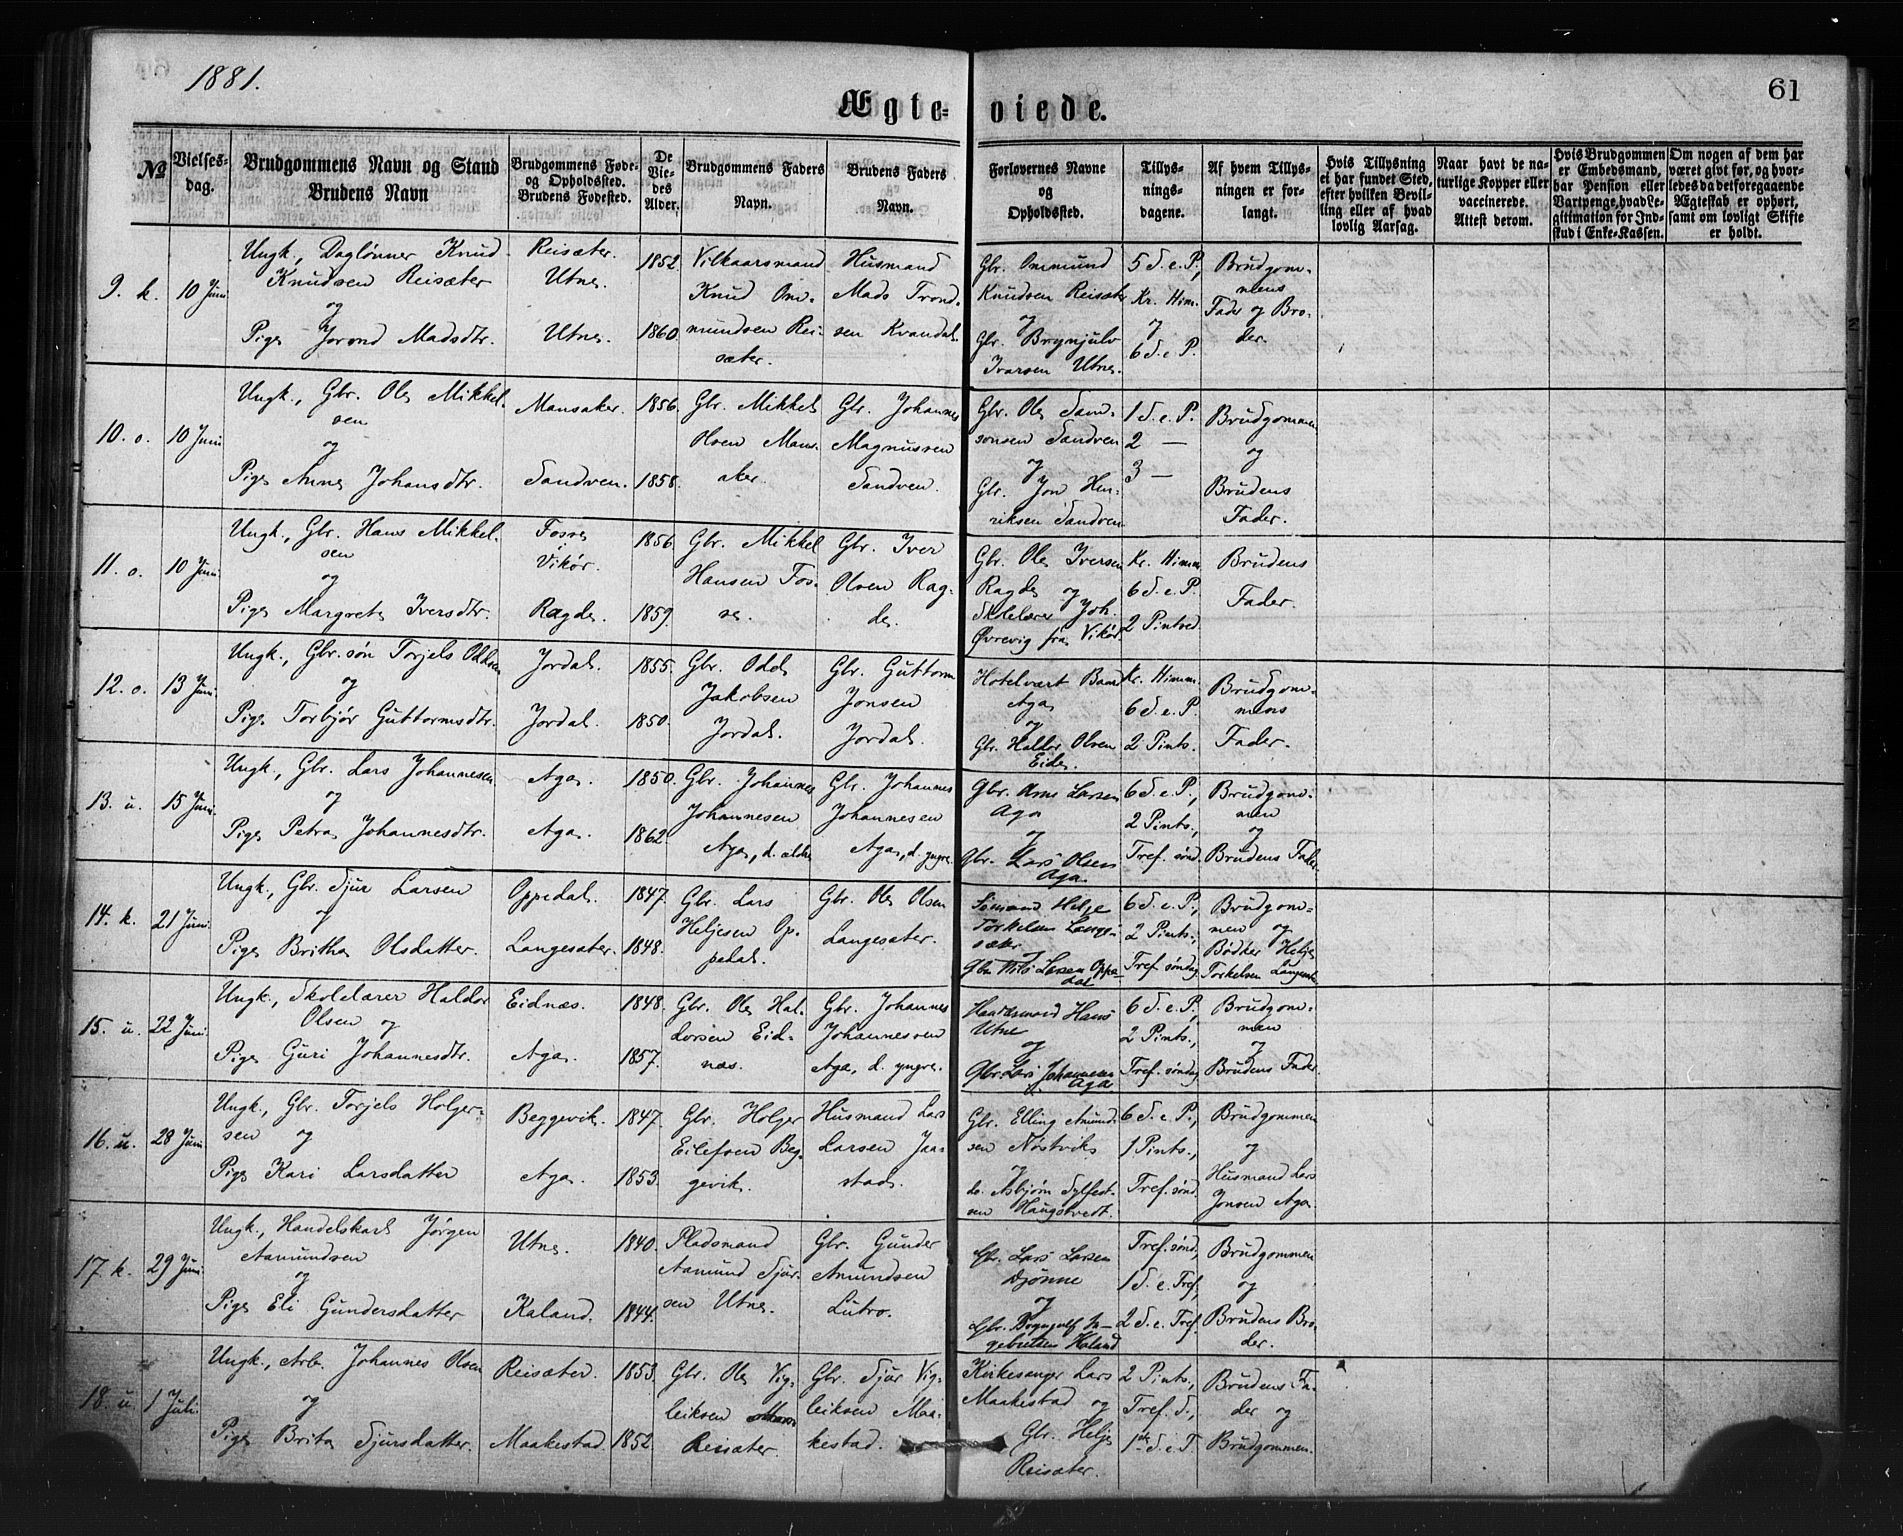 1881.
61
Ægteviede.
№
Vielsesdag.
Brudgommens Navn og Stand
Brudens Navn
Brudgommens Føde- og Opholdssted.
Brudens Fødested.
De Viedes Alder.
Brudgommens Faders Navn.
Brudens Faders Navn.
Forlovernes Navne og Opholdssted.
Tillysningsdagene.
Af hvem Tillysningen er forlangt.
Hvis Tillysning ei har fundet Sted, efter hvilken Bevilling eller af hvad lovlig Aarsag.
Naar havt de naturlige Kopper eller vaccinerede. Attest derom.
Hvis Brudgommen er Embedsmand, har Pension eller Vartpenge, hvad Legitimation for Indskud i Enke-Kassen.
Om nogen af dem har været givt før, og hvorledes da det foregaaende Ægteskab er ophørt, samt om lovligt Skifte er holdt.
9. k. 10 Juni
Ungk., Daglønner Knud Knudsen Reisæter
og
Pige Jorond Madsdtr.
Reisæter.
Utne.
Utne.
1852.
1860.
Vilkaarsmand Knud Ommundsen Reisæter.
Husmand Mads Trondsen Kvandal.
Gbr. Ommund Knudsen Reisæter
og
Gbr. Brynjulv Ivarsen Utne.
5 S. e. P.,
Kr. Him.
og
6 S. e. P.
Brudgommens Fader og Broder.
10. o. 10 Juni
Ungk., Gbr. Ole Mikkelsen
og
Pige Anne Johansdtr.
Mansaker.
Sandven.
1856.
1858.
Gbr. Mikkel Olsen Mansaker.
Gbr. Johannes Magnussen Sandven.
Gbr. Ole Samsonsen Sandven
og
Gbr. Jon Henriksen Sandven
1 S. e. P.
2 —
3 —
Brudgommen
og
Brudens Fader.
11. o. 10 Juni
Ungk., Gbr. Hans Mikkelsen
og
Pige Margrete Iversdtr.
Fosse
Vikør.
Ragde.
1856.
1859.
Gbr. Mikkel Hansen Fosse.
Gbr. Iver Olsen Ragde.
Gbr. Ole Iversen Ragde og
Skolelærer Joh. Øvrevig fra Vikør.
Kr. Himm.
6 S. e. P.
2 Pintsd.
Brudens Fader.
12. o. 13 Juni.
Ungk., Gbr. søn Torjels Oddsen
og
Pige Torbjør Guttormsdtr.
Jordal.
Jordal.
1855.
1850.
Gbr. Odd Jakobsen Jordal.
Gbr. Guttorm Jonsen Jordal.
Hotelvært Baard Aga
og
Gbr. Haldor Olsen Eide.
Kr. Himm.
6 S. e. P.
2 Pints.
Brudgommens Fader.
13. u. 15 Juni.
Ungk., Gbr. Lars Johannesen
og
Pige Petra Johannesdtr.
Aga.
Aga.
1850.
1862
Gbr. Johannes Johannesen Aga, d. ældre
Gbr. Johannes Johannesen Aga, d. yngre.
Gbr. Arne Larsen Aga
og
Gbr. Lars Olsen Aga.
6 S. e. P.,
2 Pints.,
Tref. sønd.
Brudgommen
og
Brudens Fader.
14. k. 21 Juni.
Ungk., Gbr. Sjur Larsen
og
Pige Britha Olsdatter.
Oppedal.
Langesæter.
1847.
1848.
Gbr. Lars Heljesen Oppedal.
Gbr. Ole Olsen Langesæter.
Sømand Helge Torkelsen Langesæter
Gbr. Nils Larsen Oppedal
6 S. e. P.,
2 Pints.,
Tref. søndag
Brudgommen og
Bødker Helje Torkelsen Langesæt.
15. u. 22 Juni.
Ungk., Skolelærer Haldor Olsen og
Pige Guri Johannesdtr.
Eidnæs.
Aga.
1848.
1857.
Gbr. Ole Haldorsen Eidnæs.
Gbr. Johannes Johannessen Aga, d. yngre.
Handelsmand Hans Utne
og
Gbr. Lars Johannesen Aga
6 S. e. P.,
2 Pints.,
Tref. søndag
Brudgommen
og
Brudens Fader.
16. u. 28 Juni.
Ungk., Gbr. Torjels Holgersen og
Pige Kari Larsdatter
Beggevik.
Aga.
1847.
1853.
Gbr. Holger Eilefsen Beggevik.
Husmand Lars Larsen Jaastad.
Gbr. Elling Amundsen Nøstvik
do. Asbjørn Sylfestsen Haugstvedt.
6 S. e. P.,
1 Pints.,
Tref. sønd.
Brudgommen
og
Husmand Lars Jonsen Aga.
17. k. 29 Juni.
Ungk., Handelskarl Jørgen Aamundsen
og
Pige Eli Gundersdatter
Utne.
Kaland.
1840.
1844.
Pladsmand Aamund Sjursen Utne.
Gbr. Gunder Amundsen Lutro.
Gbr. Lars Larsen Djønne
og
Gbr. Brynjulf Ingebretsen Haland
Tref. sønd.,
1 S. e. Tref.,
2 S. e. Tref.
Brudgommen
og
Brudens Broder.
18. u. 1 Juli.
Ungk., Arb. Johannes Olsen
og
Pige Brita Sjursdatter.
Reisæter.
Maakestad.
1853.
1852.
Gbr. Ole Vigleiksen Reisæter.
Gbr. Sjur Vigleiksen Maakestad.
Kirkesanger Lars Maakestad og
Gbr. Helje Reisæter.
2 Pints.,
Tref. S.,
1ste S. e. T.
Brudens Fader og
Brudgommen.